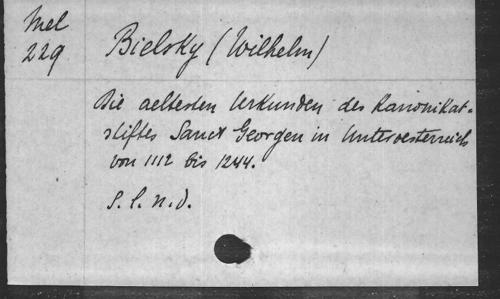 Mel
229
Bielsky (Wilhelm)
Die aeltesten Urkunden des Kanonikat-
stiftes Sanct Georgen in Unteroesterreich
von 1112 bis 1244.
S. l. n. d.